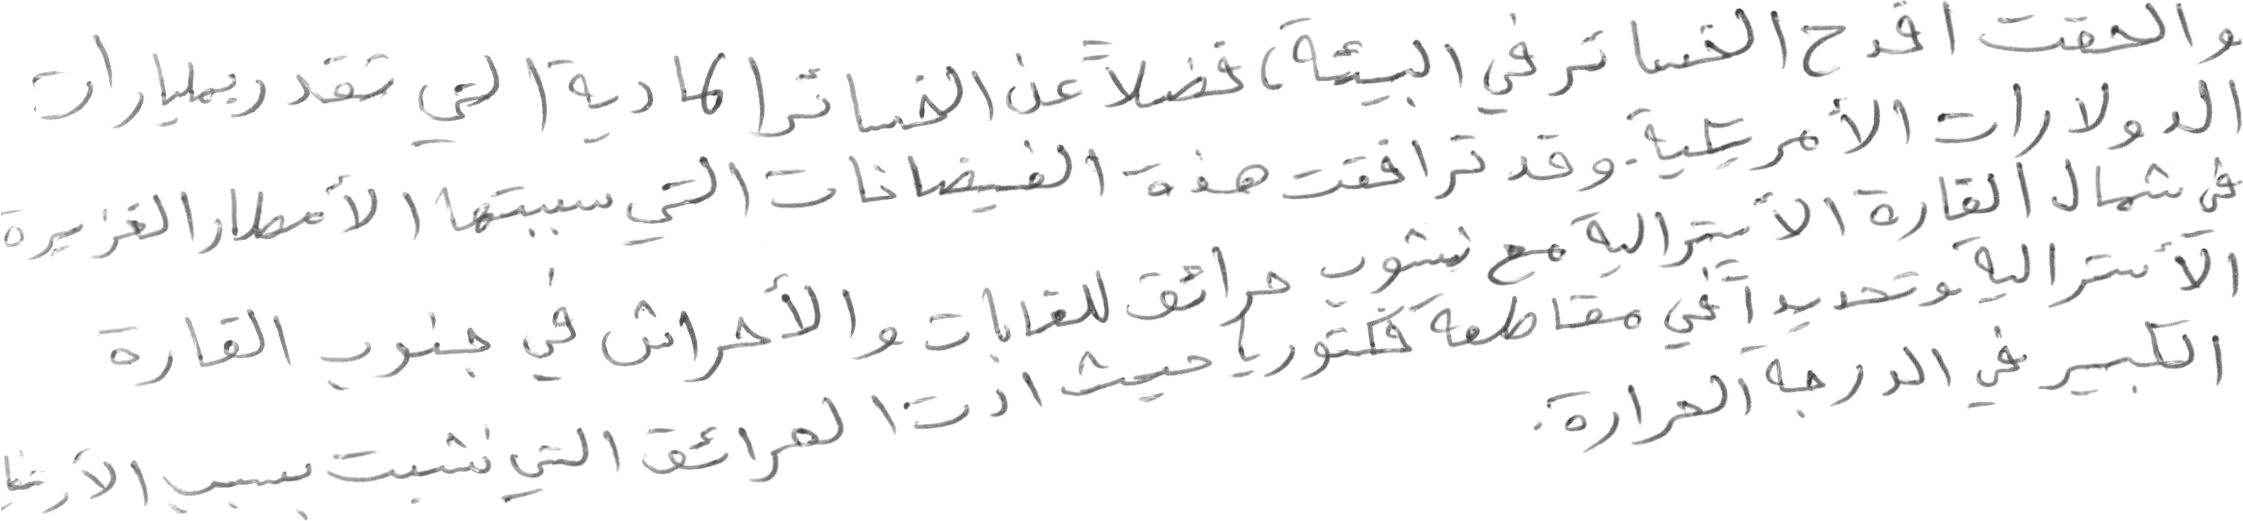 والحقت افدح الخسائر في البيئة، فضلاً عن الخسائر المادية التي تقدر بمليارات
الدولارات الأمريكية. وقد ترافقت هذه الفيضانات التي سببتها الأمطار الغزيرة
في شمال القارة الأسترالية مع نشوب حرائق للغابات والأحراش في جنوب القارة
الأسترالية وتحديداً في مقاطعة فكتوريا حيث ادت الحرائق التي نشبت بسبب الأرتفا
الكبير في الدرجة الحرارة.